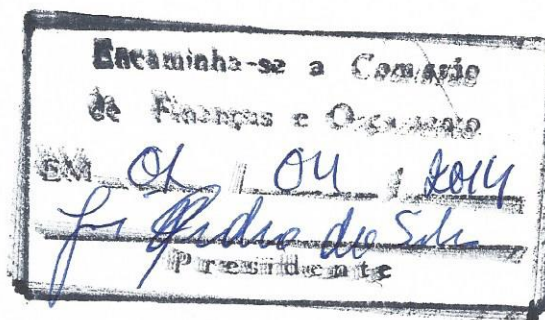 Encaminha-se a Comissão
de Finanças e Orçamento
EM 01 / 04 / 2014
da Silva
Presidente